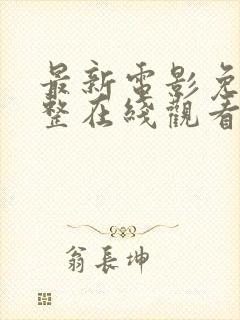 最新電影免
整在綫觀看
翁長坤